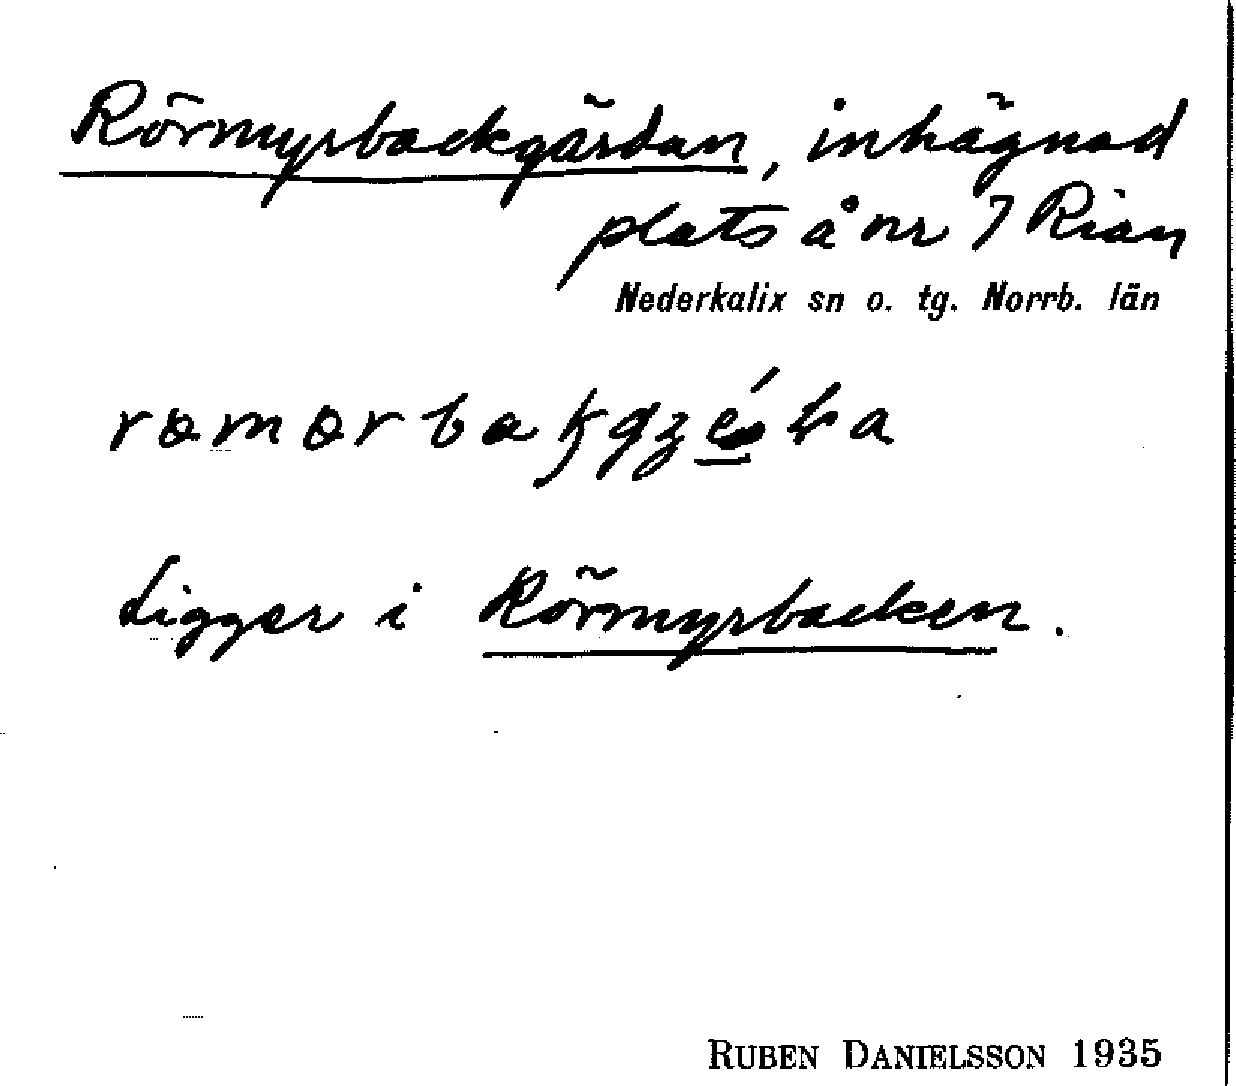 Rörmyrbackgärdan, inhägnad
plats å nr 7 Rian
Nederkalix sn o. tg. Norrb. län
Ligger i Rörmyrbacken.
RUBEN DANIELSSON 1935